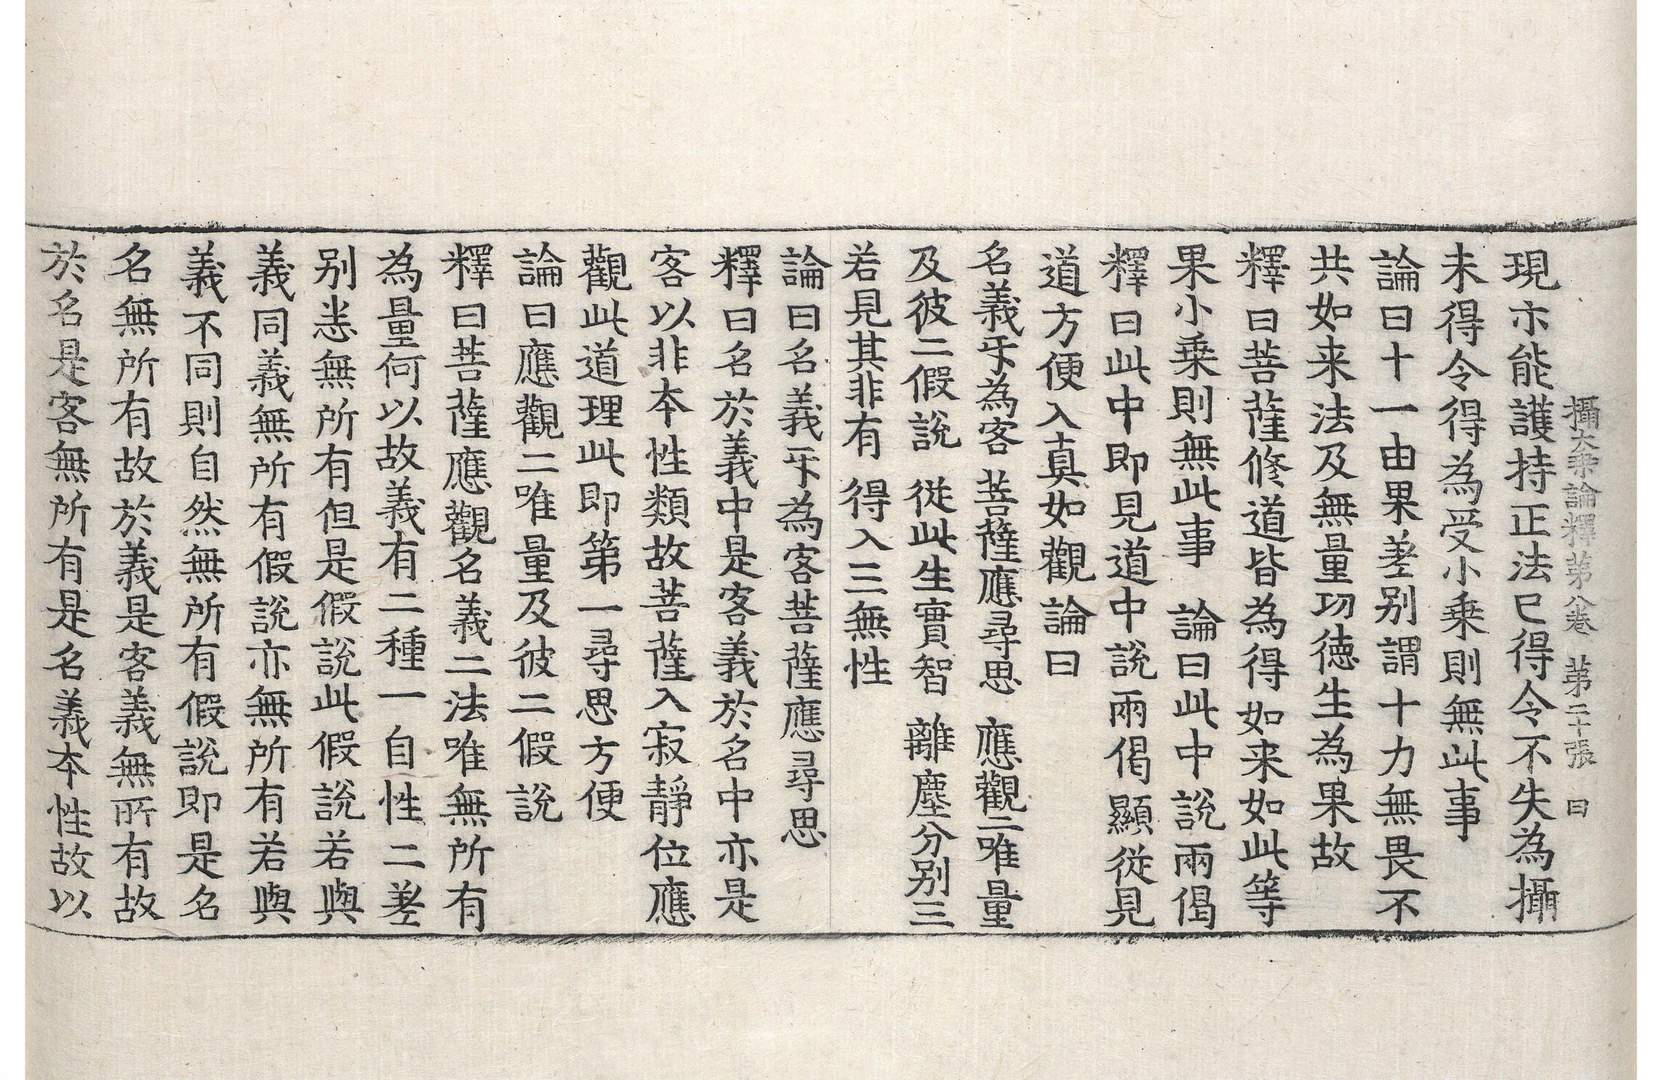 攝大乘論釋苐八卷　苐二十張　曰
現亦能護持正法已得令不失為攝
未得令得為受小乗則無此事
論曰十一由果差别謂十力無畏不
共如来法及無量功徳生為果故
釋曰菩薩修道皆為得如来如此等
果小乗則無此事　論曰此中説兩偈
釋曰此中即見道中説兩偈顯從見
道方便入真如觀　論曰
名義㸦為客　菩薩應尋思　應觀二唯量
及彼二假説　從此生實智　離塵分别三
若見其非有　得入三無性
論曰名義㸦為客菩薩應尋思
釋曰名於義中是客義於名中亦是
客以非本性類故菩薩入寂靜位應
觀此道理此即第一尋思方便
論曰應觀二唯量及彼二假説
釋曰菩薩應觀名義二法唯無所有
為量何以故義有二種一自性二差
别恙無所有但是假説此假説若與
義同義無所有假説亦無所有若與
義不同則自然無所有假説即是名
名無所有故於義是客義無所有故
於名是客無所有是名義本性故以